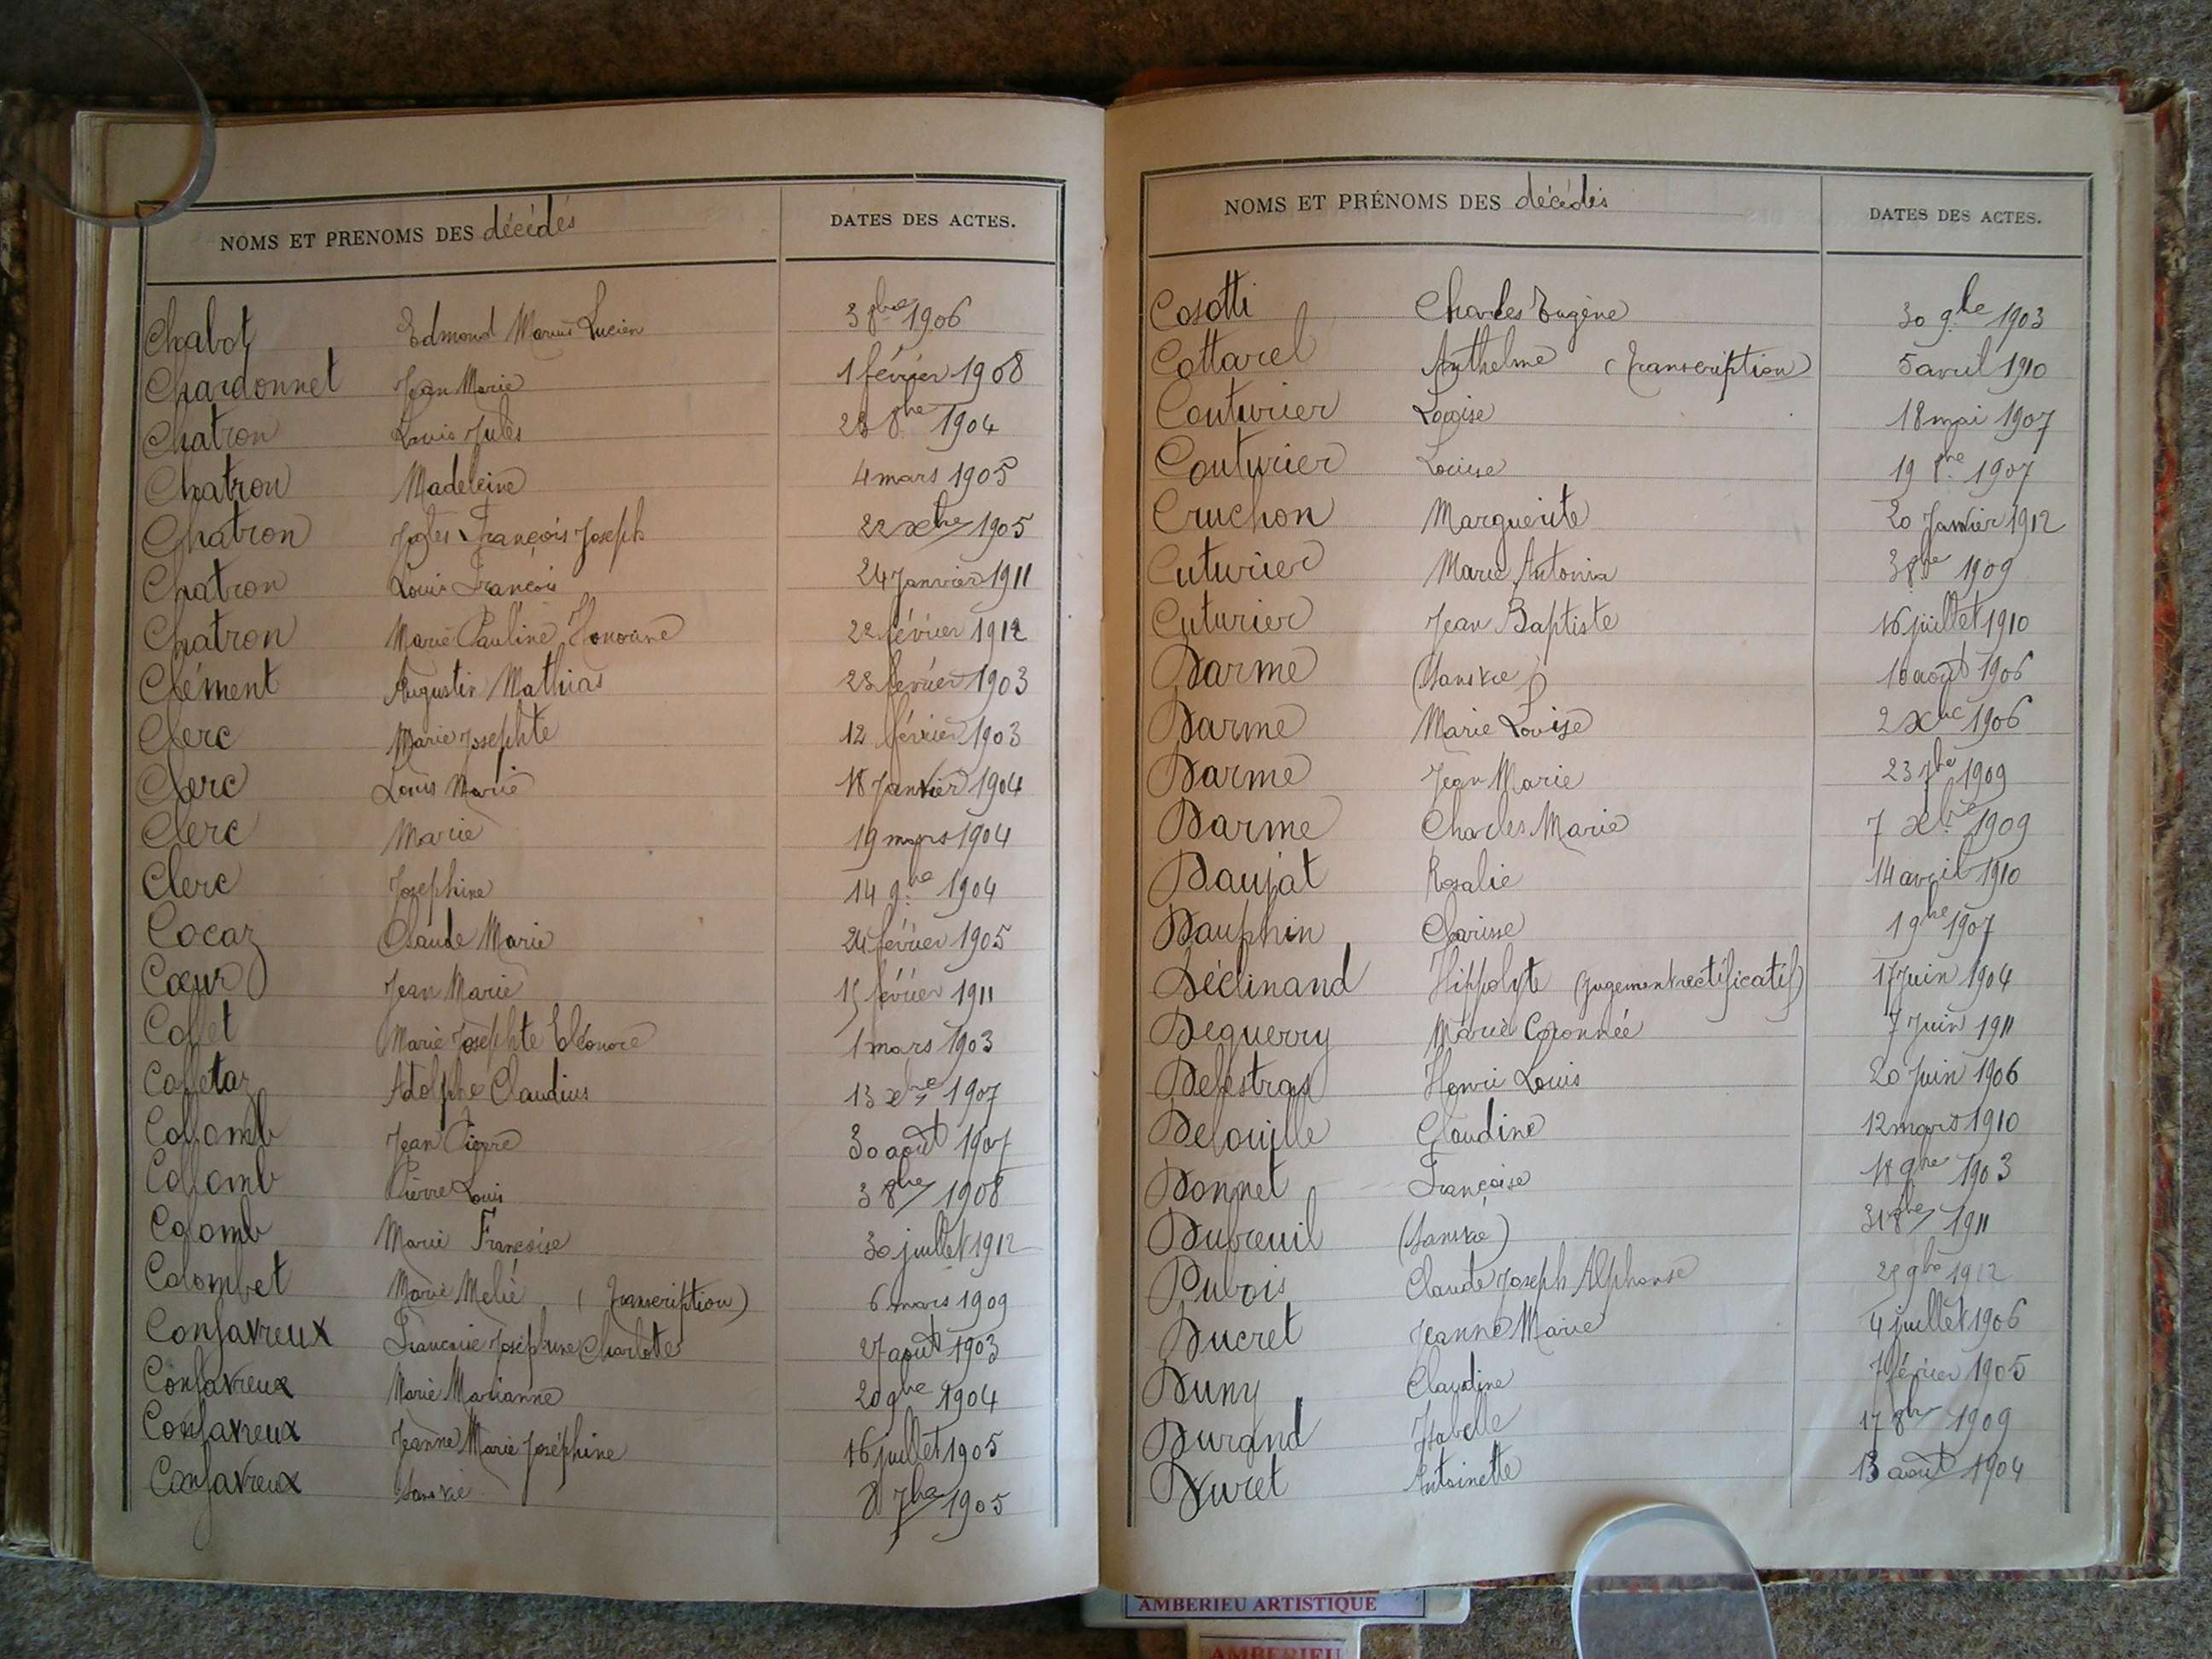 NOMS ET PRENOMS DES décédés DATES DES ACTES.
Chabot Edmond Marius Lucien 3 8bre 1906
Chardonnet Jean Marie 1 février 1908
Chatron Louis Jules 28 8bre 1904
Chatron Madeleine 4 mars 1905
Chatron Jules François Joseph 22 xbre 1905
Chatron Louis François 24 Janvier 1911
Chatron Marie Pauline Honorine 22 février 1912
Clément Augustin Mathias 23 février 1903
Clerc Marie Josephte 12 février 1903
Clerc Louis Marie 18 Janvier 1904
Clerc Marie 19 mars 1904
Clerc Josephine 14 9bre 1904
Cocaz Claude Marie 24 février 1905
Cœur Jean Marie 15 février 1911
Collet Marie Josephte Eléonore 1 mars 1903
Colletaz Adolphe Claudius 13 xbre 1907
Collomb Jean Pierre 30 août 1907
Collomb Pierre Louis 3 8bre 1908
Colomb Marie Françoise 30 juillet 1912
Colombet Marie Melie (Transcription) 6 mars 1909
Confavreux Francoise Josephine Charlotte 27 août 1903
Confavreux Marie Marianne 20 9bre 1904
Confavreux Jeanne Marie Joséphine 16 juillet 1905
Confavreux Sans vie 8 7bre 1905
NOMS ET PRÉNOMS DES décédés DATES DES ACTES.
Cosotti Charles Eugène 30 9bre 1903
Cottarel Anthelme (Transcription) 5 avril 1910
Couturier Louise 18 mai 1907
Couturier Louise 19 8bre 1907
Cruchon Marguerite 20 Janvier 1912
Cuturier Marie Antonia 3 8bre 1909
Cuturier Jean Baptiste 16 juillet 1910
Darme (Sans vie) 10 août 1906
Darme Marie Louise 2 xbre 1906
Darme Jean Marie 23 7bre 1909
Darme Charles Marie 7 xbre 1909
Daujat Rosalie 14 avril 1910
Dauphin Clarisse 1 9bre 1907
Déclinand Hippolyte (Jugement rectificatif) 17 Juin 1904
Deguerry Marie Coronnée 7 Juin 1911
Delestras Henri Louis 20 Juin 1906
Delouille Claudine 12 mars 1910
Donnet Françoise 18 9bre 1903
Dubreuil (Sans vie) 31 8bre 1911
Dubois Claude Joseph Alphonse 25 9bre 1912
Ducret Jeanne Marie 4 juillet 1906
Duny Claudine 7 février 1905
Durand Isabelle 17 8bre 1909
Duret Antoinette 13 août 1904
AMBERIEU ARTISTIQUE
AMBERIEU